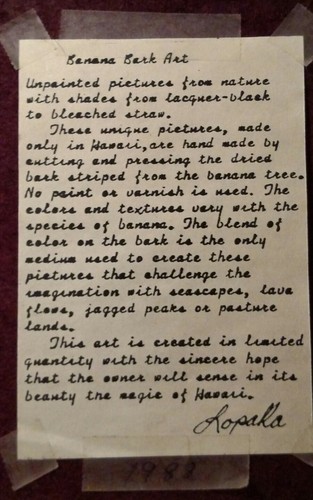 Banana Bark Art
Unpainted pictures from nature
with shades from lacquer-black
to bleached straw.
These unique pictures, made
only in Hawaii, are hand made by
cutting and pressing the dried
bark striped from the banana tree.
No paint or varnish is used. The
colors and textures vary with the
species of banana. The blend of
color on the bark is the only
medium used to create these
pictures that challenge the
imagination with seascapes, lava
flows, jagged peaks or pasture
lands.
This art is created in limited
quantity with the sincere hope
that the owner will sense in its
beauty the magic of Hawaii.
Lopaka
1982